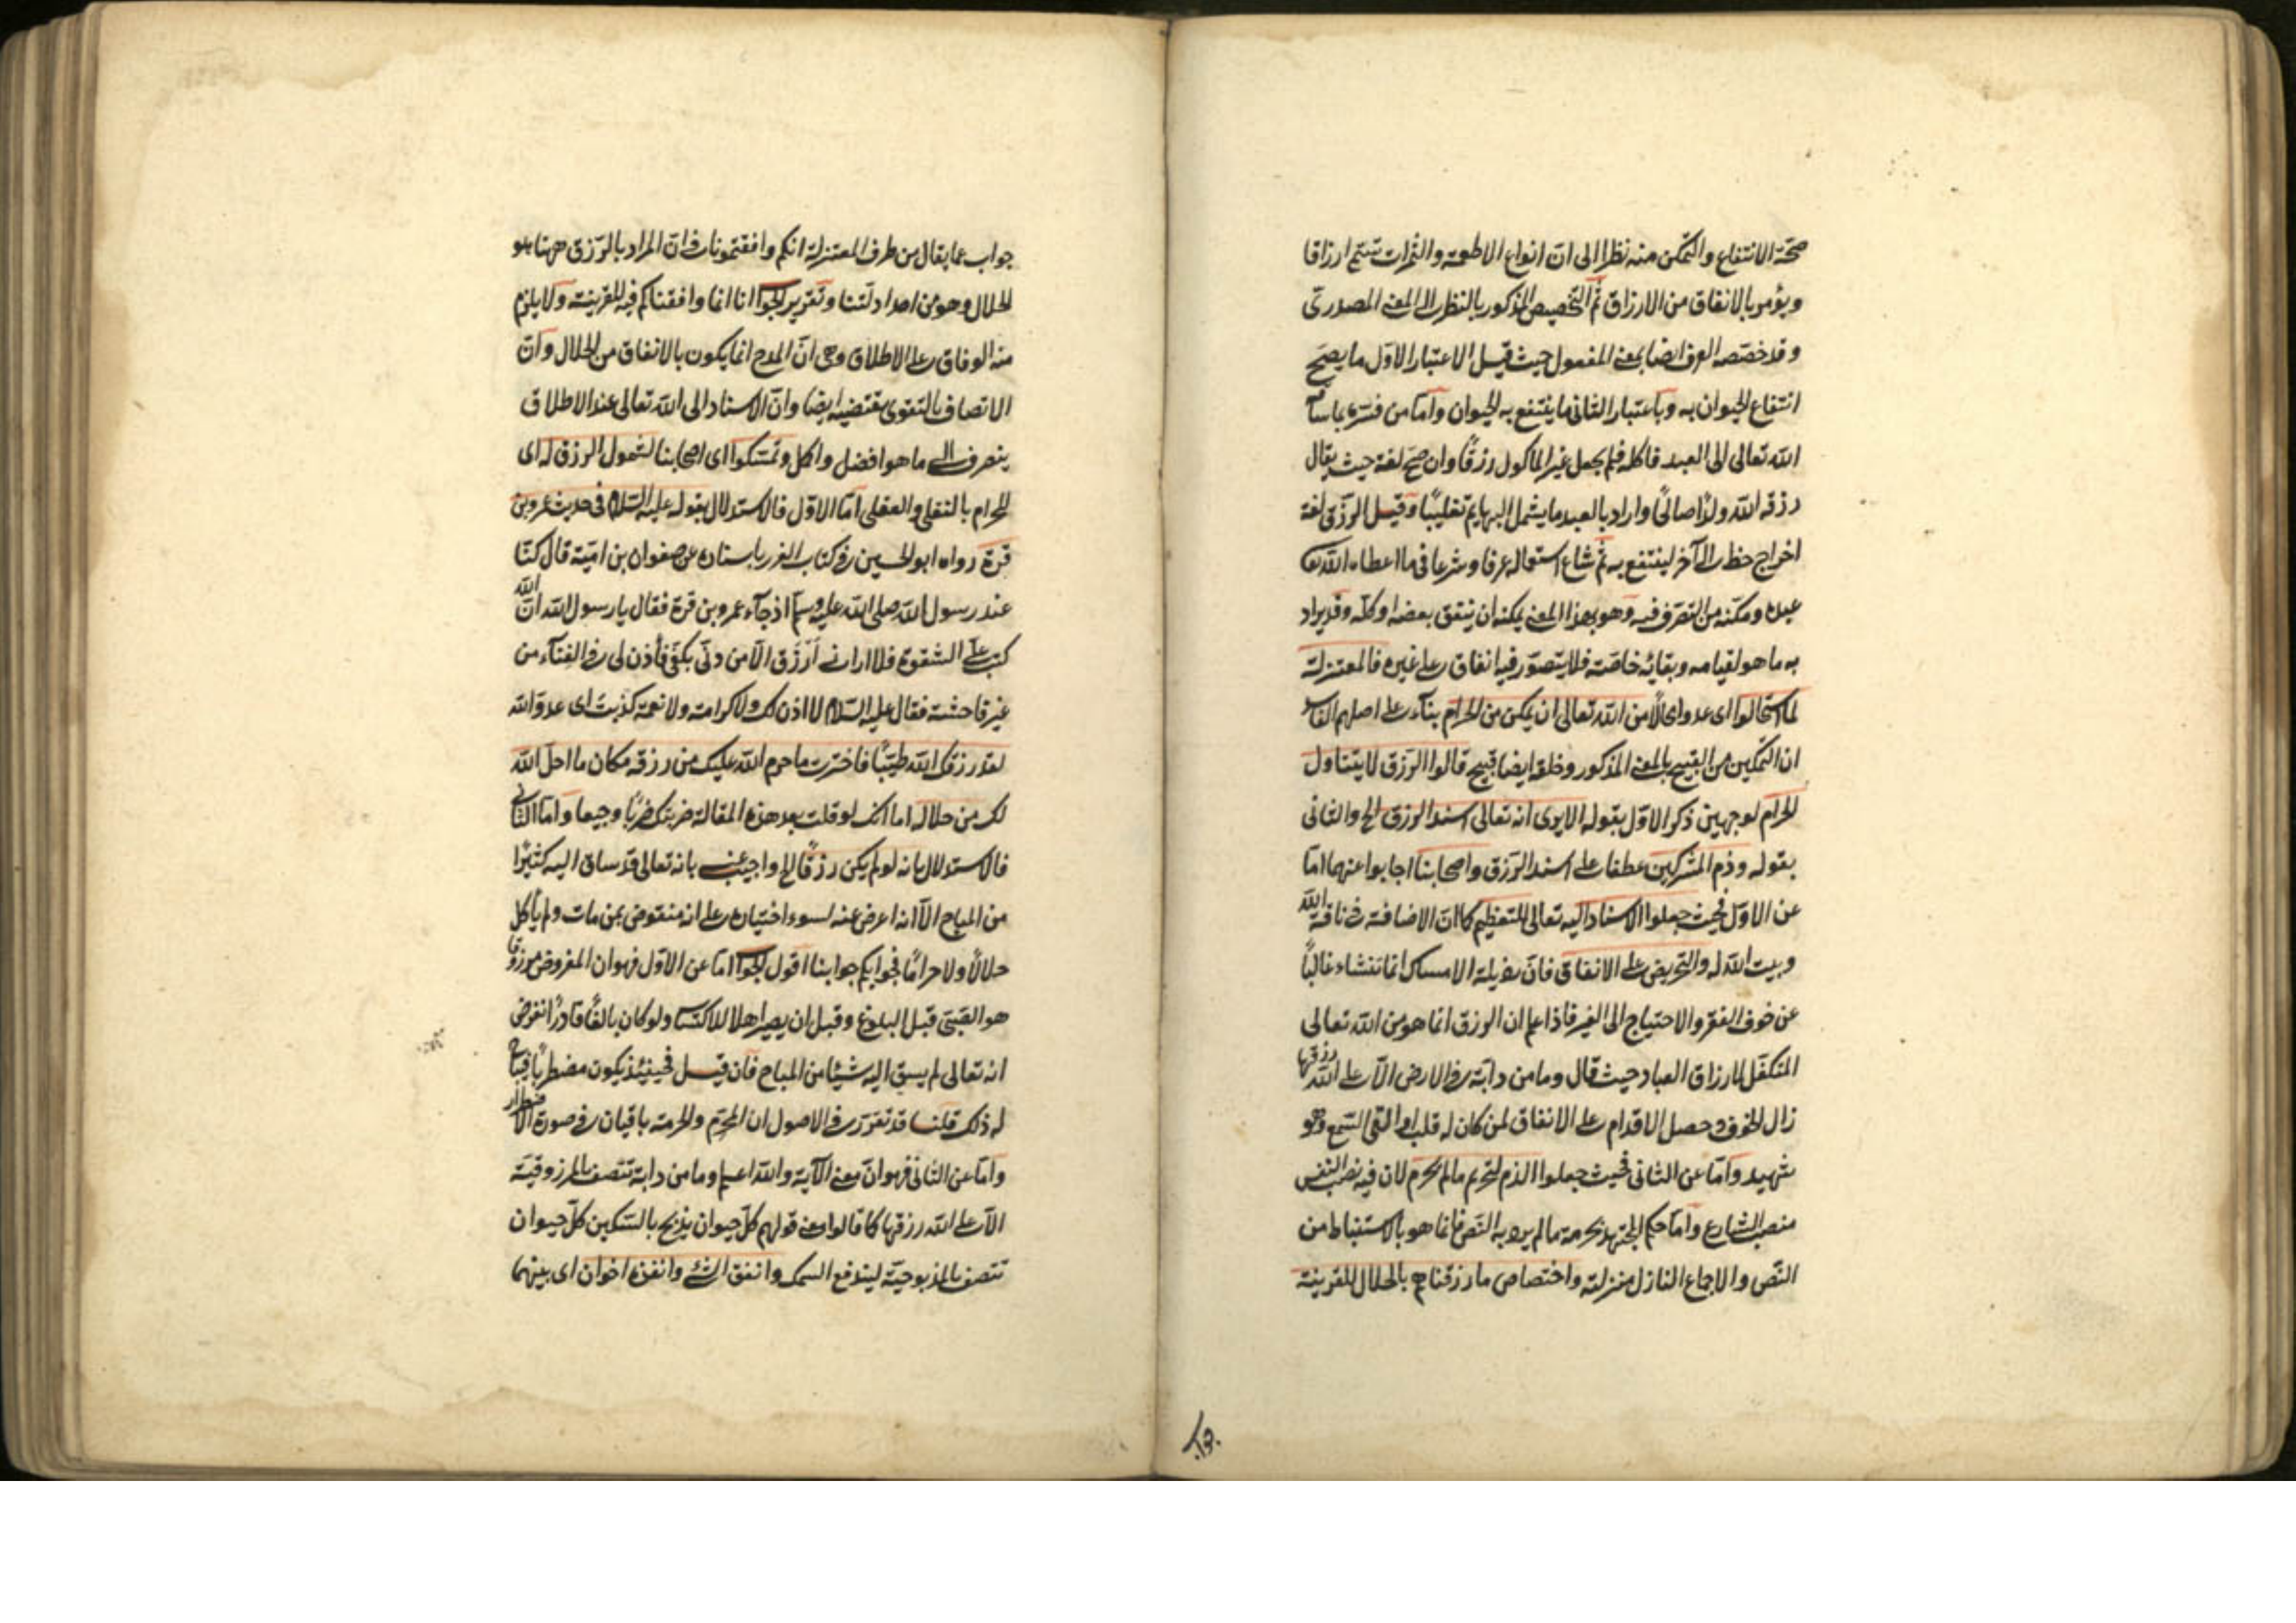 صحّة الانتفاع والتمكن منه نظرا الى ان انواع الاطعمه والثمرات تسمّى ارزاقا
ويؤمر بالانفاق من الارزاق ثم التخصيص المذكور بالنظر الى المعنى المصدرى
وقد خصّصه العرف ايضا بمعنى المفعول حيث قيل الاعتبار الاول ما يصح
انتفاع الحيوان به وباعتبار الثانى ما ينتفع به الحيوان وامّا من فسّره بما ساقه
الله تعالى الى العبد فاكله فلم يجعل غير المأكول رزقًا وان صحّ لغة حيث يقال
رزقه الله ولدًا صالحًا واراد بالعبد ما يشمل البهايم تغليبًا وقيل الرزق لغة
اخراج حظ الى آخر لينتفع به ثم شاع استعماله عرفا وشرعا فى ما اعطاه الله تعالى
عبده ومكّنه من التصرف فيه وهو بهذا المعنى يمكنه ان ينفق بعضه او كله وقد يراد
به ما هو لقيامه وبقائه خاصّة فلا يتصوّر فيه انفاق على غيره فالمعتزلة
لما استحالوا اى عدوا محالًا من الله تعالى ان يمكن من الحرام بناء على اصلهم الفاسد
ان التمكين من القبيح بالمعنى المذكور وخلقه ايضا قبيح قالوا الرزق لا يتناول
الحرام لوجهين ذكر الاول بقوله الا يرى انه تعالى اسند الرزق الخ والثانى
بقوله وذم المشركين عطفا على اسند الرزق واصحابنا اجابوا عنهما امّا
عن الاوّل فحيث جعلوا الاسناد اليه تعالى للتعظيم كما ان الاضافة فى ناقة الله
وبيت الله له والتحريض على الانفاق فانّ رذيلة الامساك انما تنشاء غالبًا
عن خوف الفقر والاحتياج الى الغير فاذا علم ان الرزق انما هو من الله تعالى
المتكفل لارزاق العباد حيث قال وما من دابّة فى الارض الّا على الله رزقها
زال الخوف وحصل الاقدام على الانفاق لمن كان له قلب او القى السّمع وهو
شهيد وامّا عن الثانى فحيث جعلوا الذم لتحريم ما لم يحرم لان فيه نصب النفس
منصب الشارع وامّا حكم المجتهد بحرمة ما لم يرد به النصّ فانما هو بالاستنباط من
النّص والاجماع النازل منزلته واختصاص ما رزقناهم بالحلال للقرينة
جواب
جواب عما يقال من طرف المعتزلة انكم وافقتمونا فى انّ المراد بالرّزق ههنا هو
الحلال وهو من احد ادلتنا وتقرير الجواب انا انما وافقناكم فيه للقرينة ولا يلزم
منه الوفاق على الاطلاق وهى انّ المدح انما يكون بالانفاق من الحلال وانّ
الاتصاف بالتقوى يقتضيه ايضا وانّ الاسناد الى الله تعالى عند الاطلاق
ينصرف الى ما هو افضل واكمل وتمسّكوا اى اصحابنا لشمول الرزق له اى
للحرام بالنقلى والعقلى امّا الاوّل فالاستدلال بقوله عليه السّلام فى حديث عمرو بن
قرة رواه ابو الحسين فى كتاب الغرر باسناده عن صفوان بن اميّة قال كنّا
عند رسول الله صلى الله عليه وسلم اذ جآء عمرو بن قرة فقال يا رسول الله انّ الله
كتب علىّ الشقوة فلا ارانى أُرْزَق الّا من دفّى بكفّى فأذن لى فى الغنآء من
غير فاحشة فقال عليه السّلام لا اذن لك ولا كرامة ولا نعمة كذبت اى عدوّ الله
لقد رزقك الله طيّبًا فاخترت ما حرم الله عليك من رزقه مكان ما احل الله
لك من حلاله اما انك لو قلت بعد هذه المقالة ضربتك ضربًا وجيعا وامّا الثانى
فالاستدلال بانه لو لم يكن رزقًا الخ واجيب عنه بانه تعالى قد ساق اليه كثيرًا
من المباح الّا انه اعرض عنه لسوء اختياره على انه منقوض بمن مات ولم يأكل
حلالًا ولا حرامًا فجوابكم جوابنا اقول الجواب امّا عن الاوّل فهو ان المفروض مرزوقا
هو الصّبىّ قبل البلوغ وقبل ان يصير اهلا للاكتساب ولو كان بالغًا قادرًا نفرض
انه تعالى لم يسق اليه شيئًا من المباح فان قيل فحينئذ يكون مضطرًا فيباح
له ذلك قلنا قد تقرّر فى الاصول ان المحرّم والحرمة باقيان فى صورة الاضطرار
وامّا عن الثانى فهو انّ معنى الآية والله اعلم وما من دابة تتصف بالمرزوقيّة
الّا على الله رزقها كما قالوا معنى قولهم كلّ حيوان يذبح بالسّكين كلّ حيوان
تتصف بالمذبوحيّة ليندفع السمك وانفق الشئ وانفذه اخوان اى بينهما